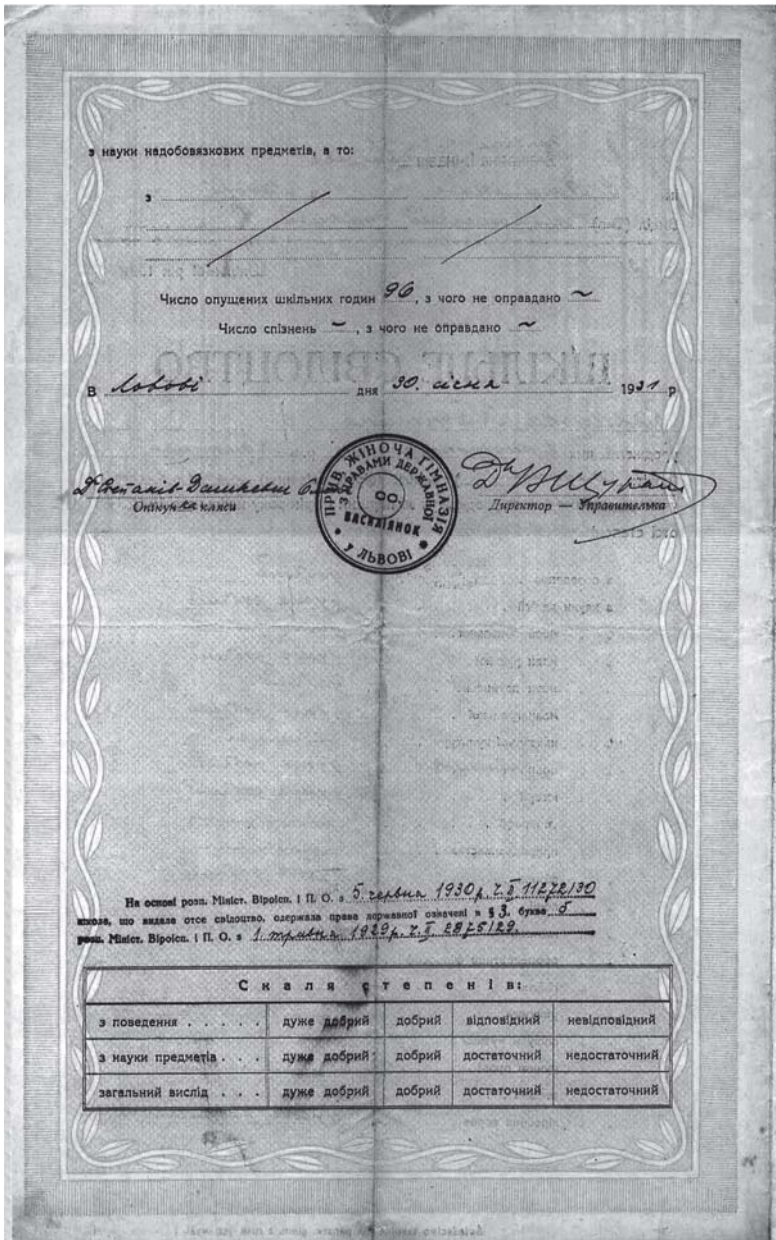 з науки надобовязкових предметів, а то:
з
Число опущених шкільних годин 96, з чого не оправдано ~
Число спізнень ~, з чого не оправдано ~
В Львові дня 30. січня 1931 р
ПРИВ. ЖІНОЧА ГІМНАЗІЯ
З ПРАВАМИ ДЕРЖАВНОЇ
ОО.
ВАСИЛІЯНОК
У ЛЬВОВІ
Др Степанів-Дашкевич
Опікунка кляси
Dr В Щурат
Директор — Управителька
На основі розп. Мініст. Віроісп. і П. О. з 5. червня 1930 р. Ч. II 11272/30
школа, що видала отсе свідоцтво, одержала права державної означені в § 3. буква б
розп. Мініст. Віроісп. і П. О. з 1. травня 1929 р. Ч. II. 2875/29.
Скаля степенів:
з поведення . . . . . дуже добрий добрий відповідний невідповідний
з науки предметів . . . дуже добрий добрий достаточний недостаточний
загальний вислід . . . дуже добрий добрий достаточний недостаточний